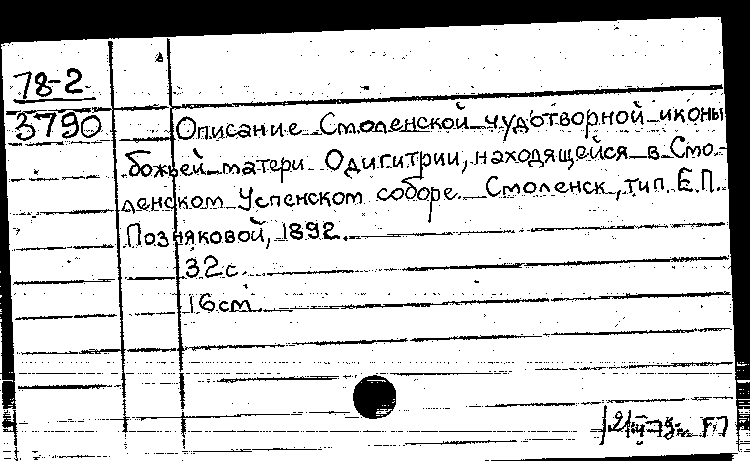 78-2
3790
Описание Смоленской чудотворной иконы
божьей матери Одигитрии, находящейся в Смо-
ленском Успенском соборе. Смоленск, тип. Е.П.
Позняковой, 1892.
32 с.
16 см.